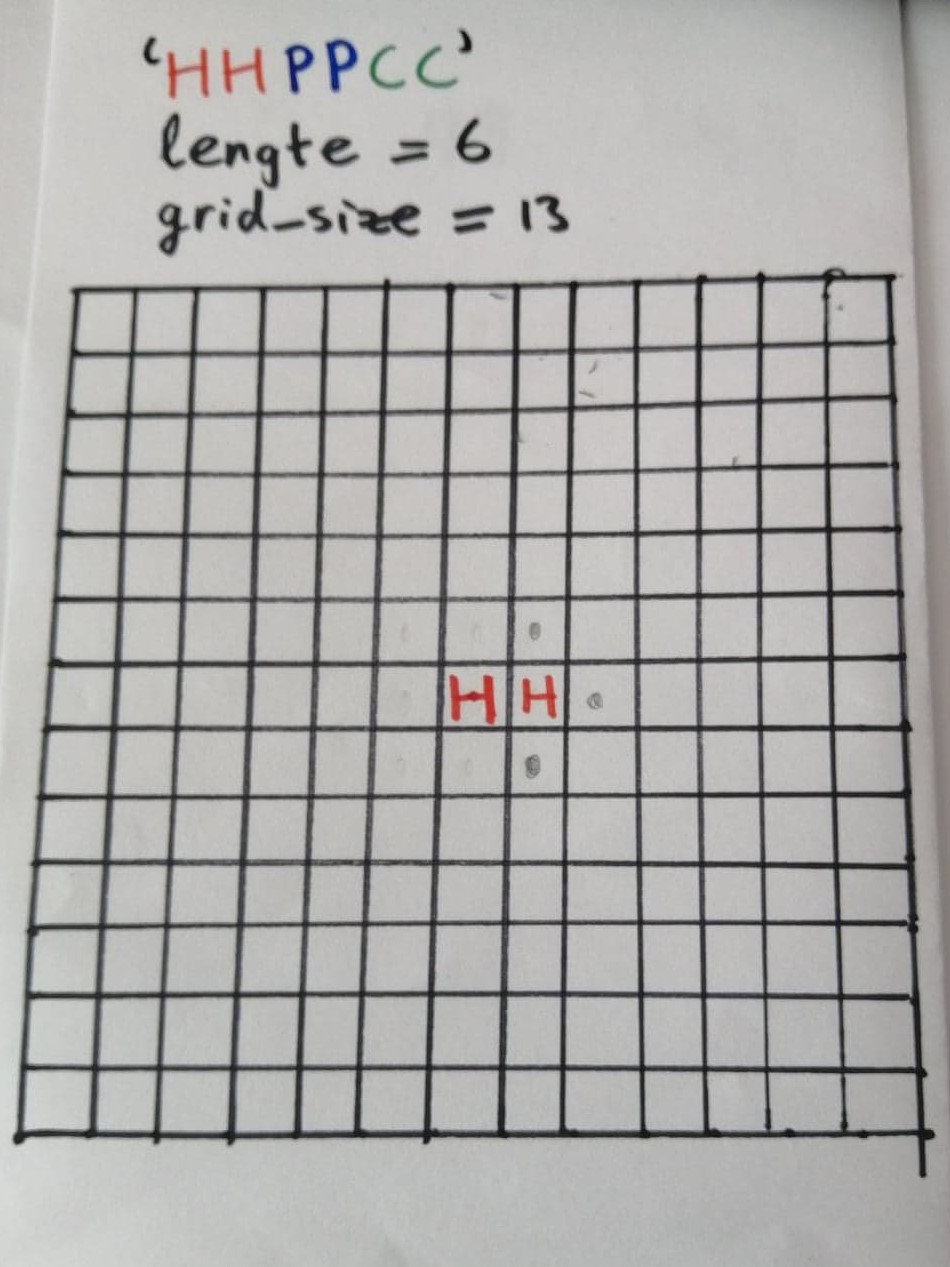 'HHPPCC'
lengte = 6
grid_size = 13
H H